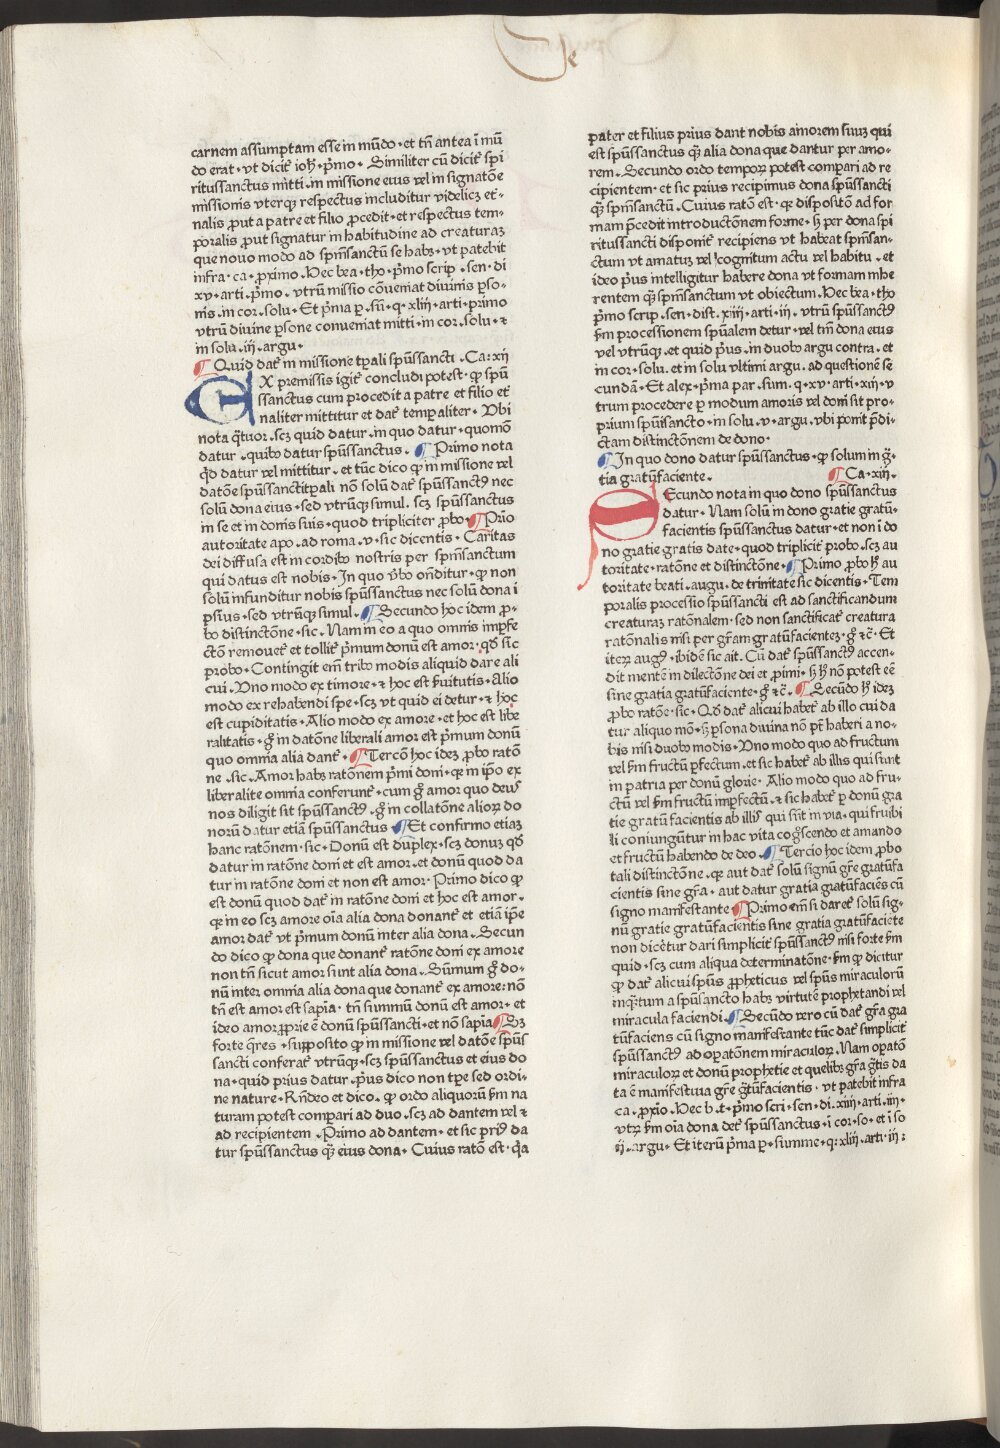 De
carnem assumptam esse in mũdo · et tñ antea ĩ mũ
do erat · vt dicit᷑ ioh᷑ · pͥmo · Similiter cũ dicit᷑ spi
ritussanctus mitti · in missione eius vel in signatõe
missionis vterq; respectus includitur videlicz et᷑-
nalis ꝓut a patre et filio ꝓcedit · et respectus tem-
poralis ꝓut signatur in habitudine ad creaturaz
que nouo modo ad spm̃sanctũ se habz · vt patebit
infra · ca · ꝓximo · Hec bea · tho · pͥmo scrip · sen · di
xv · arti · pͥmo · vtrũ missio cõueniat diuinis pſo-
nis · in cor · solu · Et pͥma ꝑ · sũ · q · xliij · arti · primo
vtrũ diuine ꝑsone conueniat mitti · in cor · solu · ⁊
in solu · iij · argu ·
¶ Quid dat᷑ in missione tꝑali spũssancti · Ca · xij
EX premissis igit᷑ concludi potest · ꝙ spũ
ssanctus cum procedit a patre et filio et᷑
naliter mittitur et dat᷑ temꝑaliter · Vbi
nota q̃tuor · scz quid datur · in quo datur · quomõ
datur · quibꝰ datur spũssanctus · ¶ Primo nota
qd̃ datur vel mittitur · et tũc dico ꝙ in missione vel
datõe spũssanctitꝑali nõ solũ dat᷑ spũssanctꝰ nec
solũ dona eius · sed vtrũq; simul · scz spũssanctus
in se et in donis suis · quod tripliciter ꝓbo · ¶ Prio
autoritate apo · ad roma · v · sic dicentis · Caritas
dei diffusa est in cordibꝰ nostris per spm̃sanctum
qui datus est nobis · In quo v̾bo on̄ditur · ꝙ non
solũ infunditur nobis spũssanctus nec solũ dona i
psius · sed vtrũq; simul · ¶ Secundo hoc idem ꝓ-
bo distinctõne · sic · Nam in eo a quo omnis impfe
ctõ remouet᷑ et tollit᷑ pͥmum donũ est amor · qd̃ sic
probo · Contingit em̃ tribꝰ modis aliquid dare ali
cui · Vno modo ex timore · ⁊ hoc est s̾uitutis · Alio
modo ex rehabendi spe · scz vt quid ei detur · ⁊ hoc
est cupiditatis · Alio modo ex amore · et hoc est libe
ralitatis · g̊ in datõne liberali amor est pͥmum donũ
quo omnia alia dant᷑ · ¶ Tercõ hoc idez ꝓbo ratõ
ne · sic · Amor habz ratõnem pͥmi doni · qꝛ in ip̃o ex
liberalite omnia conferunt᷑ · cum g̊ amor quo deus
nos diligit sit spũssanctꝰ · g̊ in collatõne alioꝝ do
norũ datur etiã spũssanctus ¶ Et confirmo etiaz
hanc ratõnem · sic · Donũ est duplex · scz donuz qd̃
datur in ratõne doni et est amor · et donũ quod da
tur in ratõne doni et non est amor · Primo dico ꝙ
est donũ quod dat᷑ in ratõne doni et hoc est amor ·
qꝛ in eo scz amore oĩa alia dona donant᷑ et etiã ip̃e
amor dat᷑ vt pͥmum donũ inter alia dona · Secun
do dico ꝙ dona que donant᷑ ratõne doni ex amore
non tñ sicut amor sunt alia dona · Sũmum g̊ do-
nũ inter omnia alia dona que donant᷑ ex amore : nõ
tñ est amor est sapĩa · tñ summũ donũ est amor · et
ideo amor ꝓprie ẽ donũ spũssancti · et nõ sapĩa ¶ Sz
forte q̃res · supposito ꝙ in missione vel datõe spũs
sancti conferat᷑ vtrũq; · scz spũssanctus et eius do
na · quid prius datur · pͥus dico non tꝑe sed ordi-
ne nature · Rñdeo et dico · ꝙ ordo aliquorũ ẜm na
turam potest compari ad duo · scz ad dantem vel ⁊
ad recipientem · Primo ad dantem · et sic priꝰ da
tur spũssanctus q̃ꝫ eius dona · Cuius ratõ est · q̃a
pater et filius prius dant nobis amorem suuz qui
est spũssanctus q̃ꝫ alia dona que dantur per amo-
rem · Secundo ordo tempoꝝ potest compari ad re
cipientem · et sic prius recipimus dona spũssancti
q̃ꝫ spm̃sanctum · Cuius ratõ est · qꝛ dispositõ ad for
mam p̃cedit introductõnem forme · sꝫ per dona spi
ritussancti disponit᷑ recipiens vt habeat spm̃san-
ctum vt amatuz vel cognitum actu vel habitu · et
ideo pͥus intelligitur habere dona vt formam inhe
rentem q̃ꝫ spm̃sanctum vt obiectum · Hec bea · tho
pͥmo scrip · sen · dist · xiiij · arti · ij · vtrũ spũssanctꝰ
ẜm processionem spũalem detur · vel tm̃ dona eius
vel vtrũq; · et quid pͥus · in duobꝰ argu contra · et
in cor · solu · et in solu vltimi argu · ad questionẽ se
cundã · Et alex · pͥma par · sum · q · xv · arti · xij · v
trum procedere ꝑ modum amoris vel doni sit pro-
prium spũisancto · in solu · v · argu · vbi ponit p̃di-
ctam distinctõnem de dono ·
¶ In quo dono datur spũssanctus · ꝙ solum in g̃-
tia gratũfaciente · ¶ Ca · xiij ·
SEcundo nota in quo dono spũssanctus
datur · Nam solũ in dono gratie gratũ-
facientis spũssanctus datur · et non ĩ do
no gratie gratis date · quod triplicit᷑ probo · scz au
toritate · ratõne et distinctõne · ¶ Primo ꝓbo hͦ au
toritate beati · augu · de trinitate sic dicentis · Tem
poralis processio spũssancti est ad sanctificandum
creaturaz ratõnalem · sed non sanctificat᷑ creatura
ratõnalis nisi per gr̃am gratũfacientez · g̊ ⁊c̃ · Et
iteꝝ augꝰ · ibidẽ sic ait · Cũ dat᷑ spũssanctꝰ accen-
dit mentẽ in dilectõne dei et ꝓximi · sꝫ hͦ nõ potest eẽ
sine gratia gratũfaciente · g̊ ⁊c̃ · ¶ Secũdo hͦ idez
ꝓbo ratõe · sic · Qd̃ dat᷑ alicui habet᷑ ab illo cui da
tur aliquo mõ · sꝫ ꝑsona diuina nõ pt᷑ haberi a no-
bis nisi duobꝰ modis · Vno modo quo ad fructum
vel ẜm fructũ ꝑfectum · et sic habet᷑ ab illis qui sunt
in patria per donũ glorie · Alio modo quo ad fru-
ctũ vel ẜm fructũ impfectũ · ⁊ sic habet᷑ ꝑ donũ gra
tie gratũ facientis ab illis qui sũt in via · qui fruibi
li coniungũtur in hac vita cog̊scendo et amando
et fructũ habendo de deo · ¶ Tercio hoc idem ꝓbo
tali distinctõne · qꝛ aut dat᷑ solũ signũ gr̃e gratũfa
cientis sine gr̃a · aut datur gratia gratũfaciẽs cũ
signo manifestante ¶ Primo em̃ si daret᷑ solũ sig-
nũ gratie gratũfacientis sine gratia gratũfaciẽte
non dicetur dari simplicit᷑ spũssanctꝰ nisi forte ẜm
quid · scz cum aliqua determinatõne · ẜm ꝙ dicitur
ꝙ dat᷑ alicui spũs ꝓpheticus vel spũs miraculorũ
inq̃tum a spũsancto habz virtutẽ prophetandi vel
miracula faciendi · ¶ Secũdo vero cũ dat᷑ gr̃a gra
tũfaciens cũ signo manifestante tũc dat᷑ simplicit᷑
spũssanctꝰ ad oꝑatõnem miraculoꝝ · Nam oꝑatõ
miraculoꝝ et donũ prophetie et quelibꝫ gr̃a g̃tis da
ta ẽ manifestiua gr̃e g̃tũfacientis · vt patebit infra
ca · ꝓxio · Hec b · t · pͥmo scri · sen · di · xiiij · arti · iij ·
vtꝝ ẜm oĩa dona det᷑ spũssanctus · ĩ cor · so · et ĩ so
ij · argu · Et iterũ pͥma ꝑ · summe · q · xliij · arti · iij :